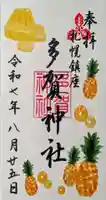 奉拝
札幌鎮座
多賀神社
令和七年八月廿五日